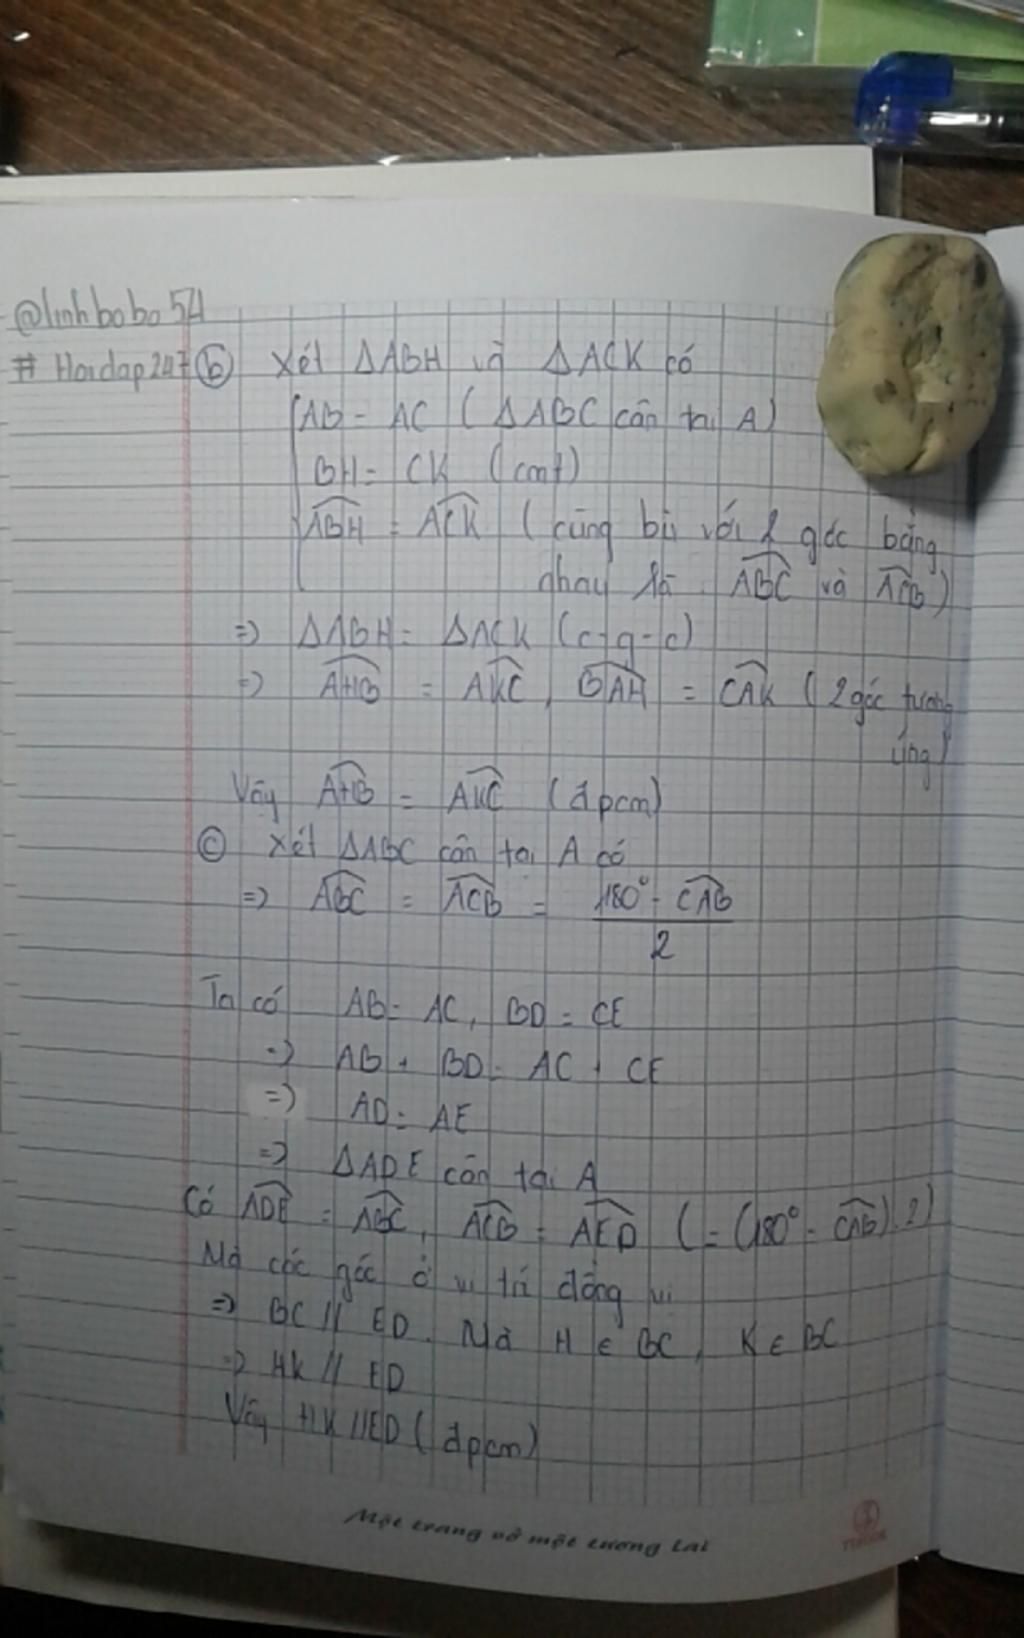 @linhbobo54
# Hoidap247 ⓑ Xét ΔABH và ΔACK có
AB = AC ( ΔABC cân tại A)
BH = CK (cmt)
$\widehat{ABH}$ = $\widehat{ACK}$ ( cùng bù với 2 góc bằng
nhau là $\widehat{ABC}$ và $\widehat{ACB}$)
=> ΔABH = ΔACK (c-g-c)
=> $\widehat{AHB}$ = $\widehat{AKC}$, $\widehat{BAH}$ = $\widehat{CAK}$ ( 2 góc tương
ứng)
Vậy $\widehat{AHB}$ = $\widehat{AKC}$ (đpcm)
ⓒ Xét ΔABC cân tại A có
=> $\widehat{ABC}$ = $\widehat{ACB}$ = $\frac{180° - \widehat{CAB}}{2}$
Ta có AB = AC, BD = CE
=> AB + BD = AC + CE
=> AD = AE
=> ΔADE cân tại A
Có $\widehat{ADE}$ = $\widehat{ABC}$, $\widehat{ACB}$ = $\widehat{AED}$ (= (180° - $\widehat{CAB}$):2)
Mà các góc ở vị trí đồng vị
=> BC // ED. Mà H ∈ BC, K ∈ BC
=> HK // ED
Vậy HK // ED (đpcm)
Một trang vở một tương lai